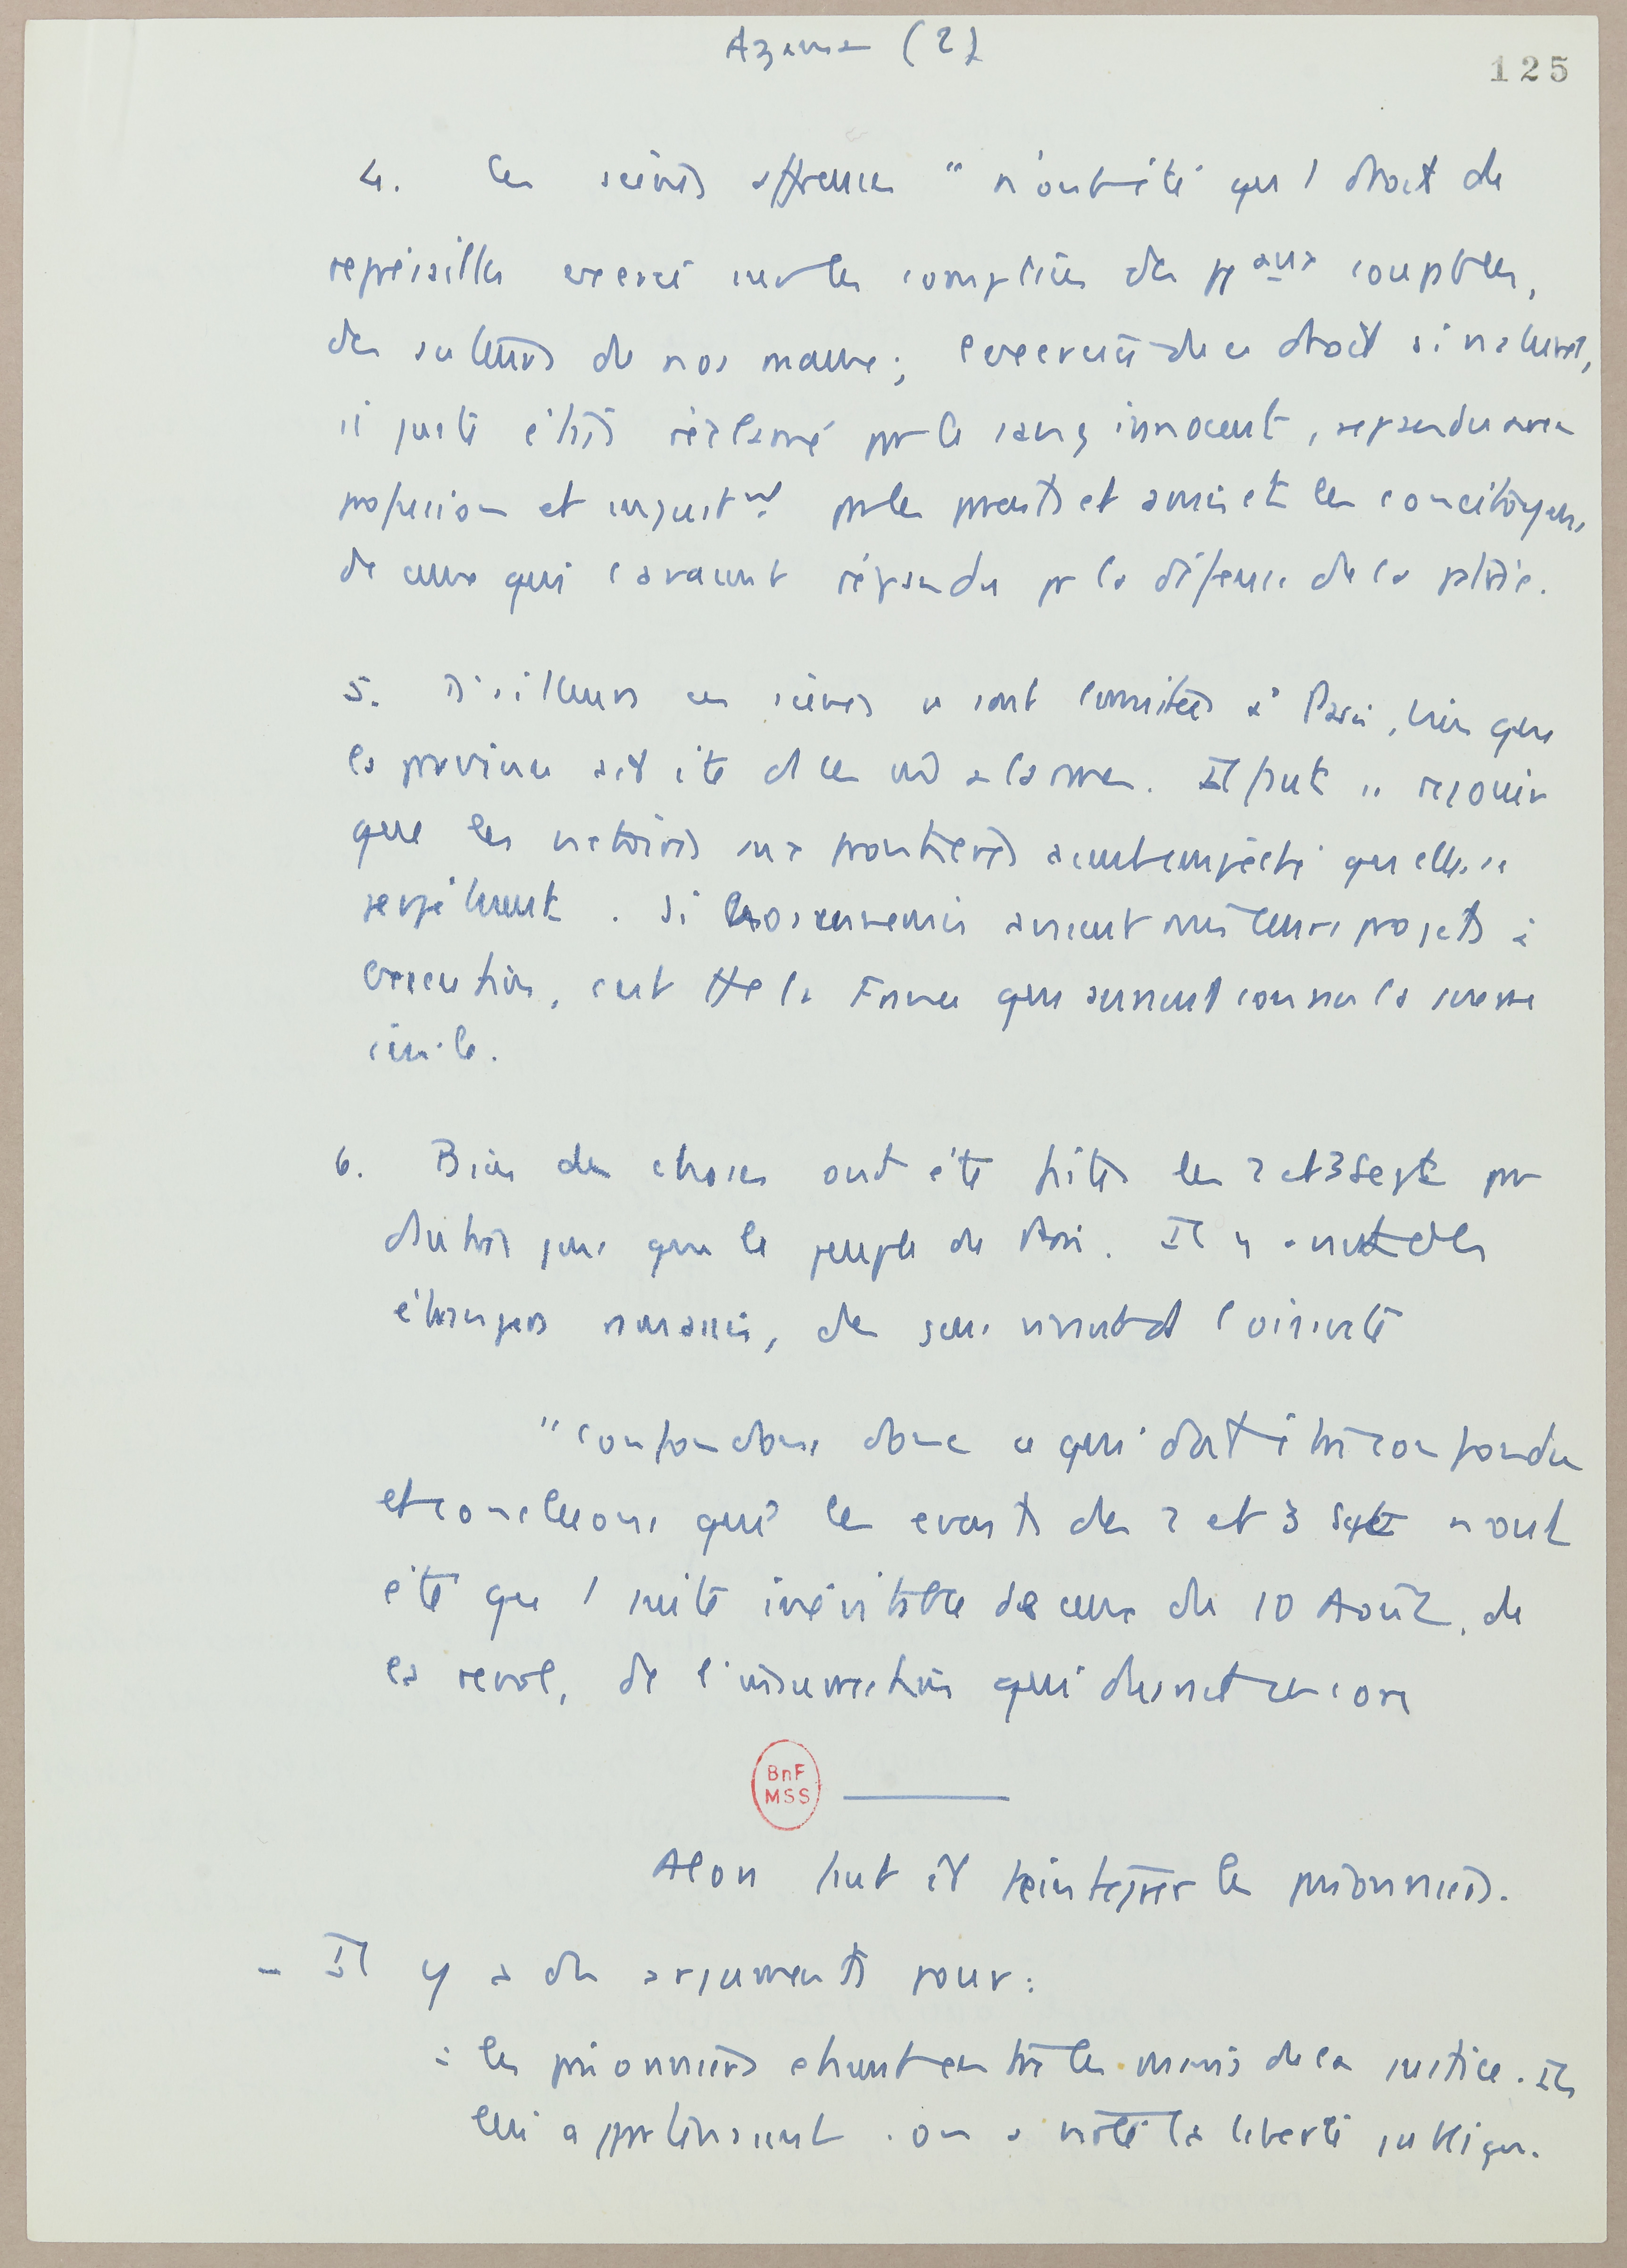 Azema (2)
125
4. Ces scènes affreuses "n'ont été qu' 1 droit de
représailles exercé sur les complices des paux coupables,
des auteurs de nos maux; l'exercice de ce droit si naturel,
si juste était réclamé par le sang innocent, répandu avec
profusion et injustmt par les parents et amis et les concitoyens,
de ceux qui l'avaient répandu pr la défense de la patrie.
5. D'ailleurs ces scènes se sont limitées à Paris, bien que
la province ait été
Il faut se réjouir
que les victoires aux frontières aient empêché qu'elles se
répètent. Si nos ennemis avaient mis leurs projets à
exécution, c'est tte la France qui aurait connu la guerre
civile.
6. Bien des choses ont été faites les 2 et 3 Sept par
d'autres gens que le peuple de Paris. Il y avait des
étrangers ramassés, des gens vivant ds l'oisiveté
"confondons donc ce qui doit être confondu
et concluons que les evets des 2 et 3 Sept n'ont
été que 1 suite inévitable de ceux du 10 Août, de
la revol, de l'insurrection qui durait encore
BnF
MSS
Alors faut il réintégrer les prisonniers.
- Il y a des arguments pour:
: les prisonniers étaient entre les mains de la justice. Ils
lui appartenaient. On a violé la liberté publique.